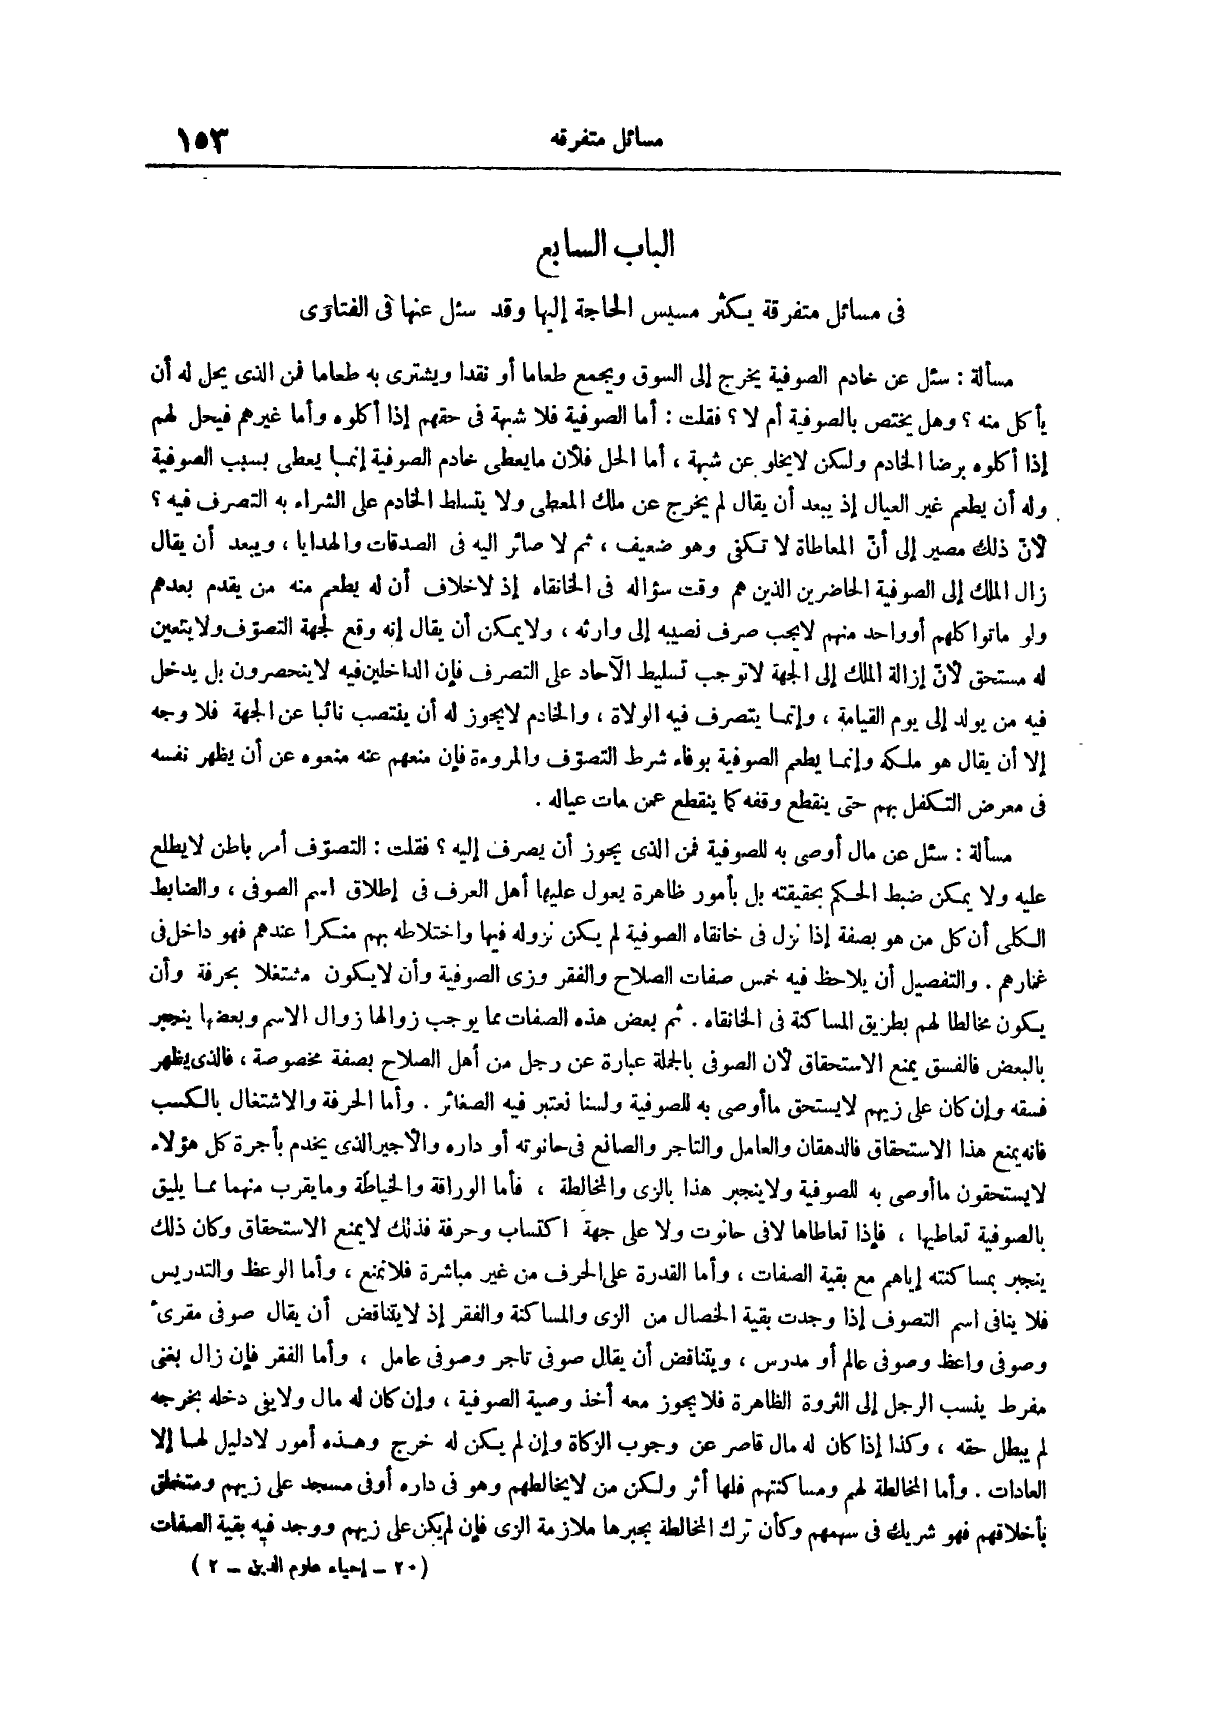 ١٥٣
مسائل متفرقه
الباب السابع
فى مسائل متفرقة يكثر مسيس الحاجة إليها وقد سئل عنها فى الفتاوى
مسألة : سئل عن خادم الصوفية يخرج إلى السوق ويجمع طعاما أو نقدا ويشترى به طعاما فمن الذى يحل له أن
يأكل منه ؟ وهل يختص بالصوفية أم لا ؟ فقلت : أما الصوفية فلا شبهة فى حقهم إذا أكلوه وأما غيرهم فيحل لهم
إذا أكلوه برضا الخادم ولكن لايخلو عن شبهة ، أما الحل فلأن مايعطى خادم الصوفية إنما يعطى بسبب الصوفية
وله أن يطعم غير العيال إذ يبعد أن يقال لم يخرج عن ملك المعطى ولا يتسلط الخادم على الشراء به التصرف فيه ؟
لأنّ ذلك مصير إلى أنّ المعاطاة لا تكفى وهو ضعيف ، ثم لا صائر اليه فى الصدقات والهدايا ، ويبعد أن يقال
زال الملك إلى الصوفية الحاضرين الذين هم وقت سؤاله فى الخانقاه إذ لاخلاف أن له يطعم منه من يقدم بعدهم
ولو ماتوا كلهم أوواحد منهم لايجب صرف نصيبه إلى وارثه ، ولايمكن أن يقال إنه وقع لجهة التصوّف ولايتعين
له مستحق لأنّ إزالة الملك إلى الجهة لاتوجب تسليط الآحاد على التصرف فإن الداخلين فيه لاينحصرون بل يدخل
فيه من يولد إلى يوم القيامة ، وإنما يتصرف فيه الولاة ، والخادم لايجوز له أن ينتصب نائبا عن الجهة فلا وجه
إلا أن يقال هو ملكه وإنما يطعم الصوفية بوفاء شرط التصوّف والمروءة فإن منعهم عنه منعوه عن أن يظهر نفسه
فى معرض التكفل بهم حتى ينقطع وقفه كما ينقطع عمن مات عياله .
مسألة : سئل عن مال أوصى به للصوفية فمن الذى يجوز أن يصرف إليه ؟ فقلت : التصوّف أمر باطن لايطلع
عليه ولا يمكن ضبط الحكم بحقيقته بل بأمور ظاهرة يعول عليها أهل العرف فى إطلاق اسم الصوفى ، والضابط
الكلى أن كل من هو بصفة إذا نزل فى خانقاه الصوفية لم يكن نزوله فيها واختلاطه بهم منكرا عندهم فهو داخل فى
غمارهم . والتفصيل أن يلاحظ فيه خمس صفات الصلاح والفقر وزى الصوفية وأن لايكون مشتغلا بحرفة وأن
يكون مخالطا لهم بطريق المساكنة فى الخانقاه . ثم بعض هذه الصفات مما يوجب زوالها زوال الاسم وبعضها ينجبر
بالبعض فالفسق يمنع الاستحقاق لأن الصوفى بالجملة عبارة عن رجل من أهل الصلاح بصفة مخصوصة ، فالذى يظهر
فسقه وإن كان على زيهم لايستحق ماأوصى به للصوفية ولسنا نعتبر فيه الصغائر . وأما الحرفة والاشتغال بالكسب
فانه يمنع هذا الاستحقاق فالدهقان والعامل والتاجر والصانع فى حانوته أو داره والأجير الذى يخدم بأجرة كل هؤلاء
لايستحقون ماأوصى به للصوفية ولاينجبر هذا بالزى والمخالطة ، فأما الوراقة والخياطة ومايقرب منهما مما يليق
بالصوفية تعاطيها ، فإذا تعاطاها لافى حانوت ولا على جهة اكتساب وحرفة فذلك لايمنع الاستحقاق وكان ذلك
ينجبر بمساكنته إياهم مع بقية الصفات ، وأما القدرة على الحرف من غير مباشرة فلاتمنع ، وأما الوعظ والتدريس
فلا ينافى اسم التصوف إذا وجدت بقية الخصال من الزى والمساكنة والفقر إذ لايتناقض أن يقال صوفى مقرئ
وصوفى واعظ وصوفى عالم أو مدرس ، ويتناقض أن يقال صوفى تاجر وصوفى عامل ، وأما الفقر فإن زال بغنى
مفرط ينسب الرجل إلى الثروة الظاهرة فلايجوز معه أخذ وصية الصوفية ، وإن كان له مال ولايفى دخله بخرجه
لم يبطل حقه ، وكذا إذا كان له مال قاصر عن وجوب الزكاة وإن لم يكن له خرج وهذه أمور لادليل لها إلا
العادات . وأما المخالطة لهم ومساكنتهم فلها أثر ولكن من لايخالطهم وهو فى داره أوفى مسجد على زيهم ومتخلق
بأخلاقهم فهو شريك فى سهمهم وكأن ترك المخالطة يجبرها ملازمة الزى فإن لم يكن على زيهم ووجد فيه بقية الصفات
( ٢٠ – إحياء علوم الدين – ٢ )